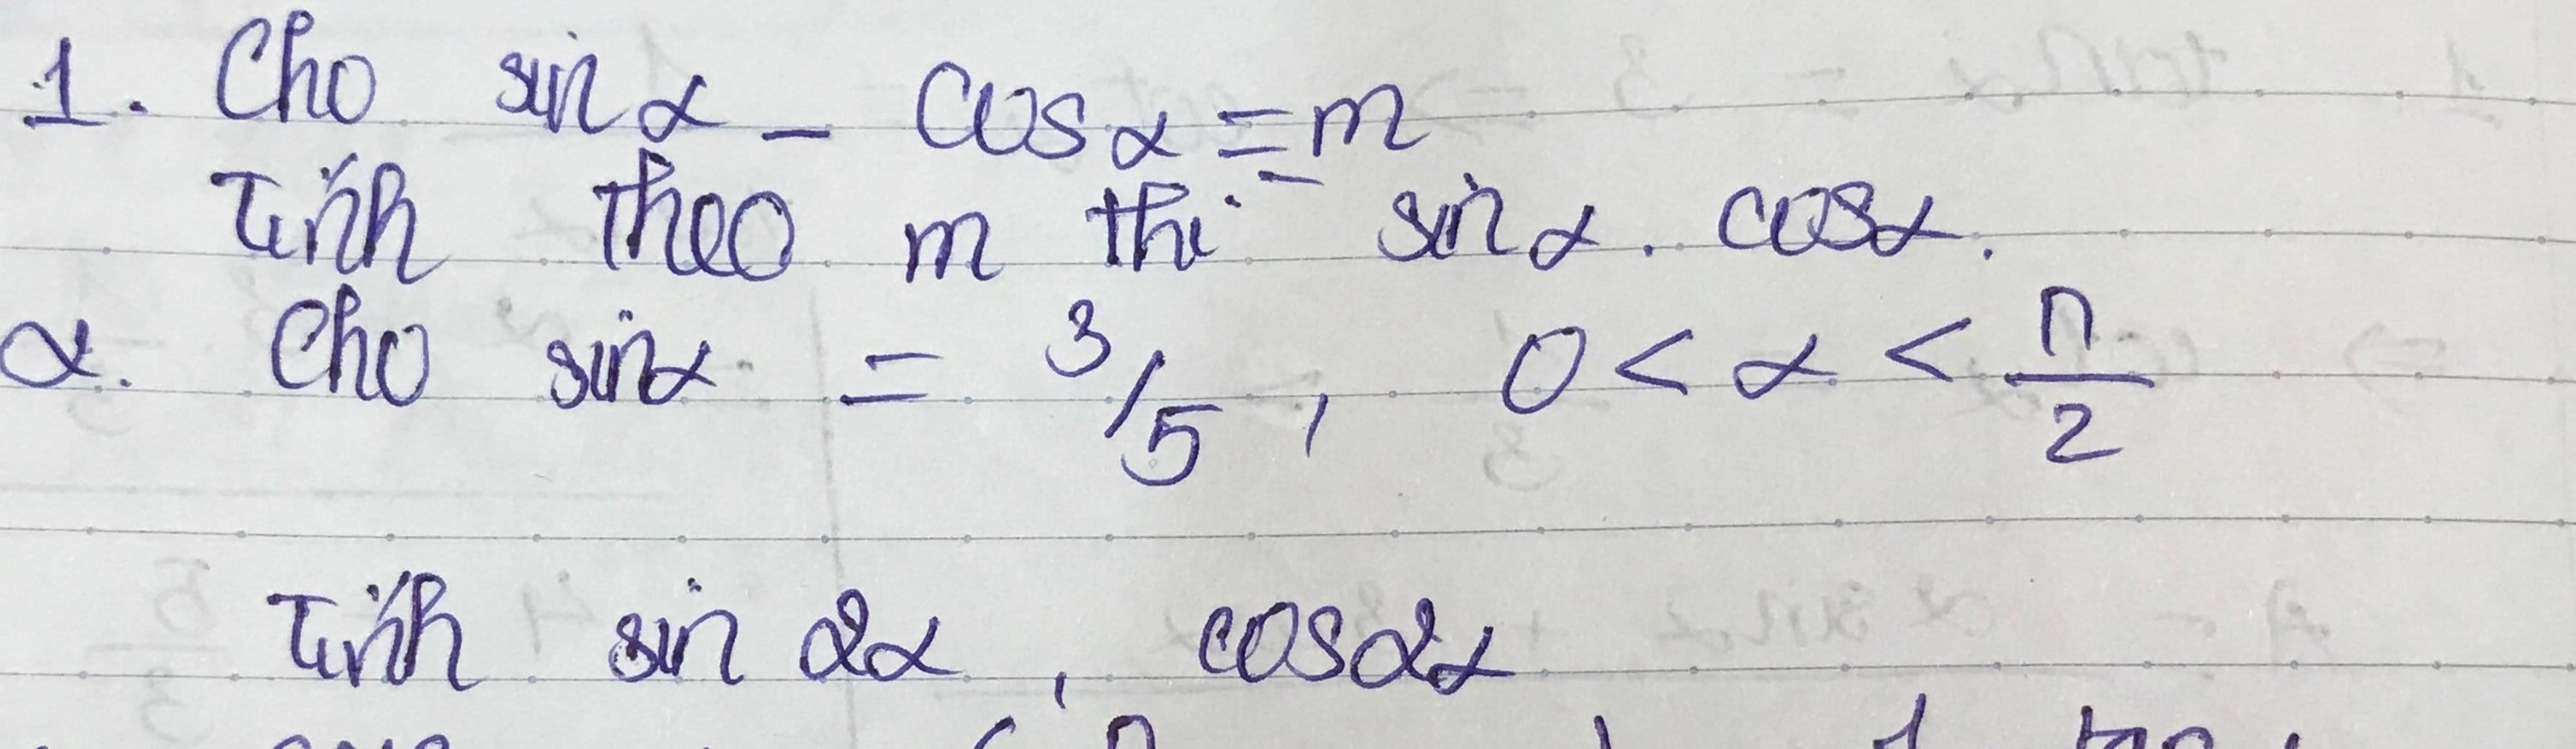 1. Cho sin α - cos α = m
Tính theo m thì sin α . cos α.
2. Cho sin α = 3/5 , 0 < α < π/2
Tính sin 2α , cos 2α